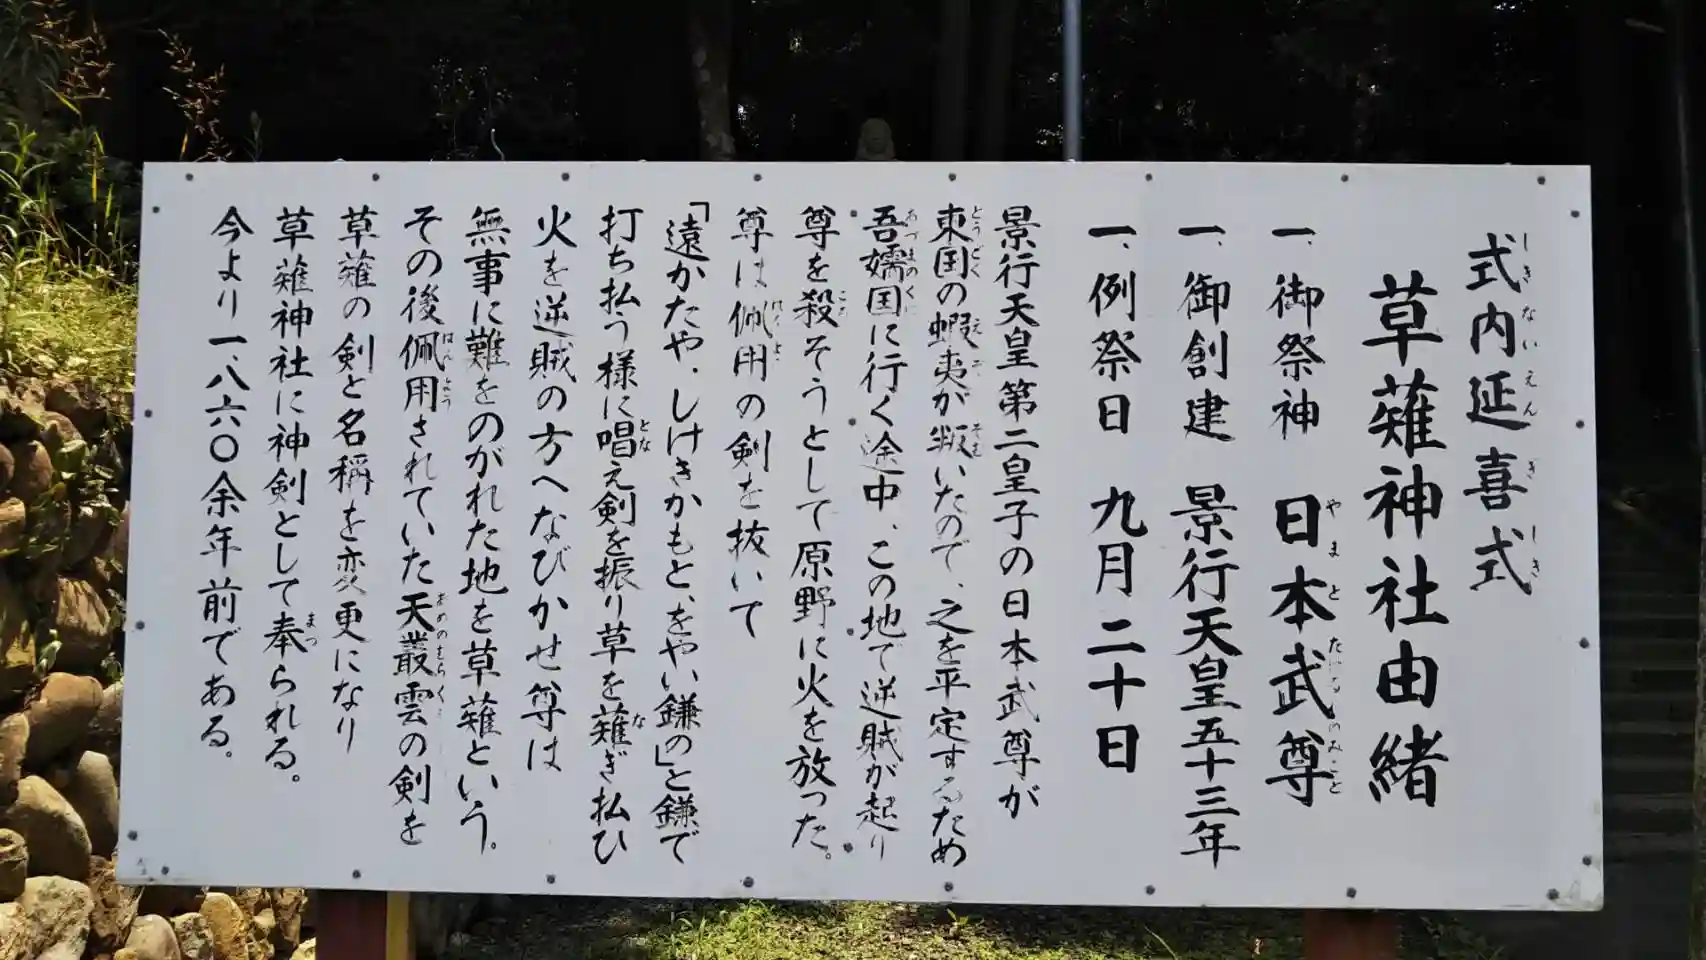 式内延喜式
しきないえんぎしき
草薙神社由緒
一、御祭神 日本武尊
やまとたけるのみこと
一、御創建 景行天皇五十三年
一、例祭日 九月二十日
景行天皇第二皇子の日本武尊が
東国の蝦夷が叛いたので、之を平定するため
とうごく えぞ そむ
吾嬬国に行く途中、この地で逆賊が起り
あづまのくに
尊を殺そうとして原野に火を放った。
ころ
尊は佩用の剣を抜いて
「遠かたや、しげきかもと、をやい鎌の」と鎌で
打ち払う様に唱え剣を振り草を薙ぎ払ひ
とな な
火を逆賊の方へなびかせ尊は
無事に難をのがれた地を草薙という。
その後佩用されていた天叢雲の剣を
はんよう あめのむらくも
草薙の剣と名称を変更になり
草薙神社に神剣として奉られる。
まつ
今より一、八六〇余年前である。